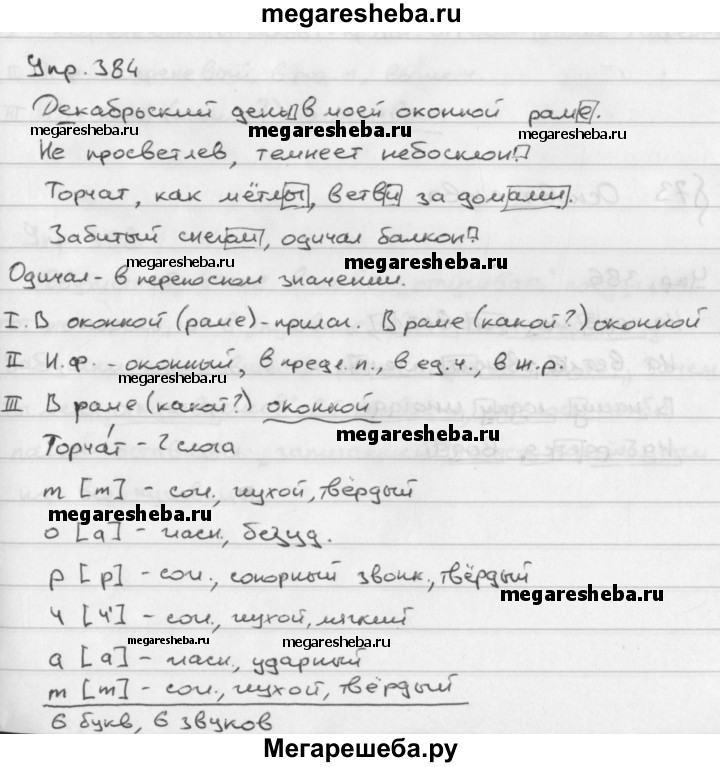 megaresheba.ru
Упр. 384
Декабрьский день в моей оконной раме.
megaresheba.ru megaresheba.ru megaresheba.ru
Не просветлев, темнеет небосклон.
Торчат, как мётлы, ветви за домами.
Забитый снегом, одичал балкон.
megaresheba.ru megaresheba.ru
Одичал - в переносном значении.
I. В оконной (раме) - прилаг. В раме (какой?) оконной
II И.ф. - оконный, в предл. п., в ед. ч., в ж.р.
megaresheba.ru
III В раме (какой?) оконной
megaresheba.ru
Торчат - 2 слога
т [т] - сог., глухой, твёрдый
megaresheba.ru
о [а] - гласн., безуд.
р [р] - сог., сонорный звонк., твёрдый
megaresheba.ru
ч [ч'] - сог., глухой, мягкий
megaresheba.ru megaresheba.ru
а [а] - гласн., ударный
т [т] - сог., глухой, твёрдый
6 букв, 6 звуков
megaresheba.ru
Мегарешеба.ру